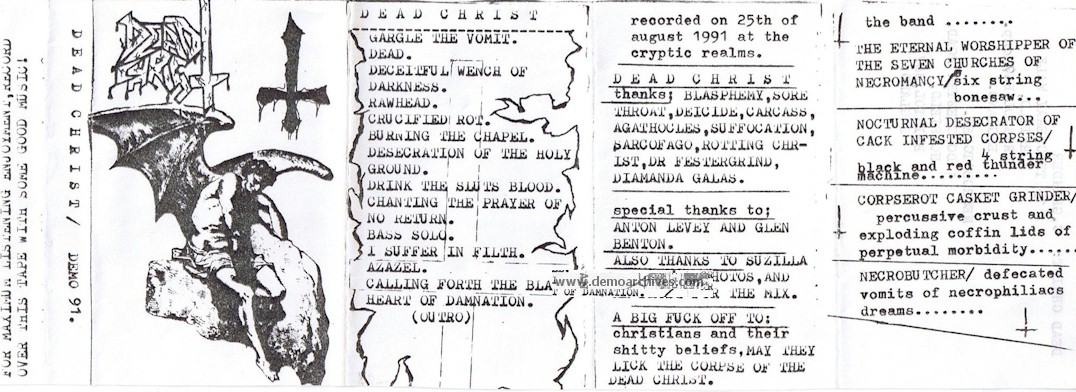 FOR MAXIMUM LISTENING ENJOYMENT,RECORD
OVER THIS TAPE WITH SOME GOOD MUSIC!
DEAD CHRIST/ DEMO 91.
DEAD
CHRIST
DEAD CHRIST
GARGLE THE VOMIT.
DEAD.
DECEITFUL WENCH OF
DARKNESS.
RAWHEAD.
CRUCIFIED ROT.
BURNING THE CHAPEL.
DESECRATION OF THE HOLY
GROUND.
DRINK THE SLUTS BLOOD.
CHANTING THE PRAYER OF
NO RETURN.
BASS SOLO.
I SUFFER IN FILTH.
AZAZEL.
CALLING FORTH THE
HEART OF DAMNATION.
(OUTRO)
www.demoarchives.com
OF DAMNATION
recorded on 25th of
august 1991 at the
cryptic realms.
DEAD CHRIST
thanks; BLASPHEMY,SORE
THROAT,DEICIDE,CARCASS,
AGATHOCLES,SUFFOCATION,
SARCOFAGO,ROTTING CHR-
IST,DR FESTERGRIND,
DIAMANDA GALAS.
special thanks to;
ANTON LEVEY AND GLEN
BENTON.
ALSO THANKS TO SUZILLA
AND
THE MIX.
A BIG FUCK OFF TO;
christians and their
shitty beliefs,MAY THEY
LICK THE CORPSE OF THE
DEAD CHRIST.
the band ........
THE ETERNAL WORSHIPPER OF
THE SEVEN CHURCHES OF
NECROMANCY/six string
bonesaw...
NOCTURNAL DESECRATOR OF
CACK INFESTED CORPSES/
4 string
black and red thunder
machine.........
CORPSEROT CASKET GRINDER/
percussive crust and
exploding coffin lids of
perpetual morbidity......
NECROBUTCHER/ defecated
vomits of necrophiliacs
dreams........